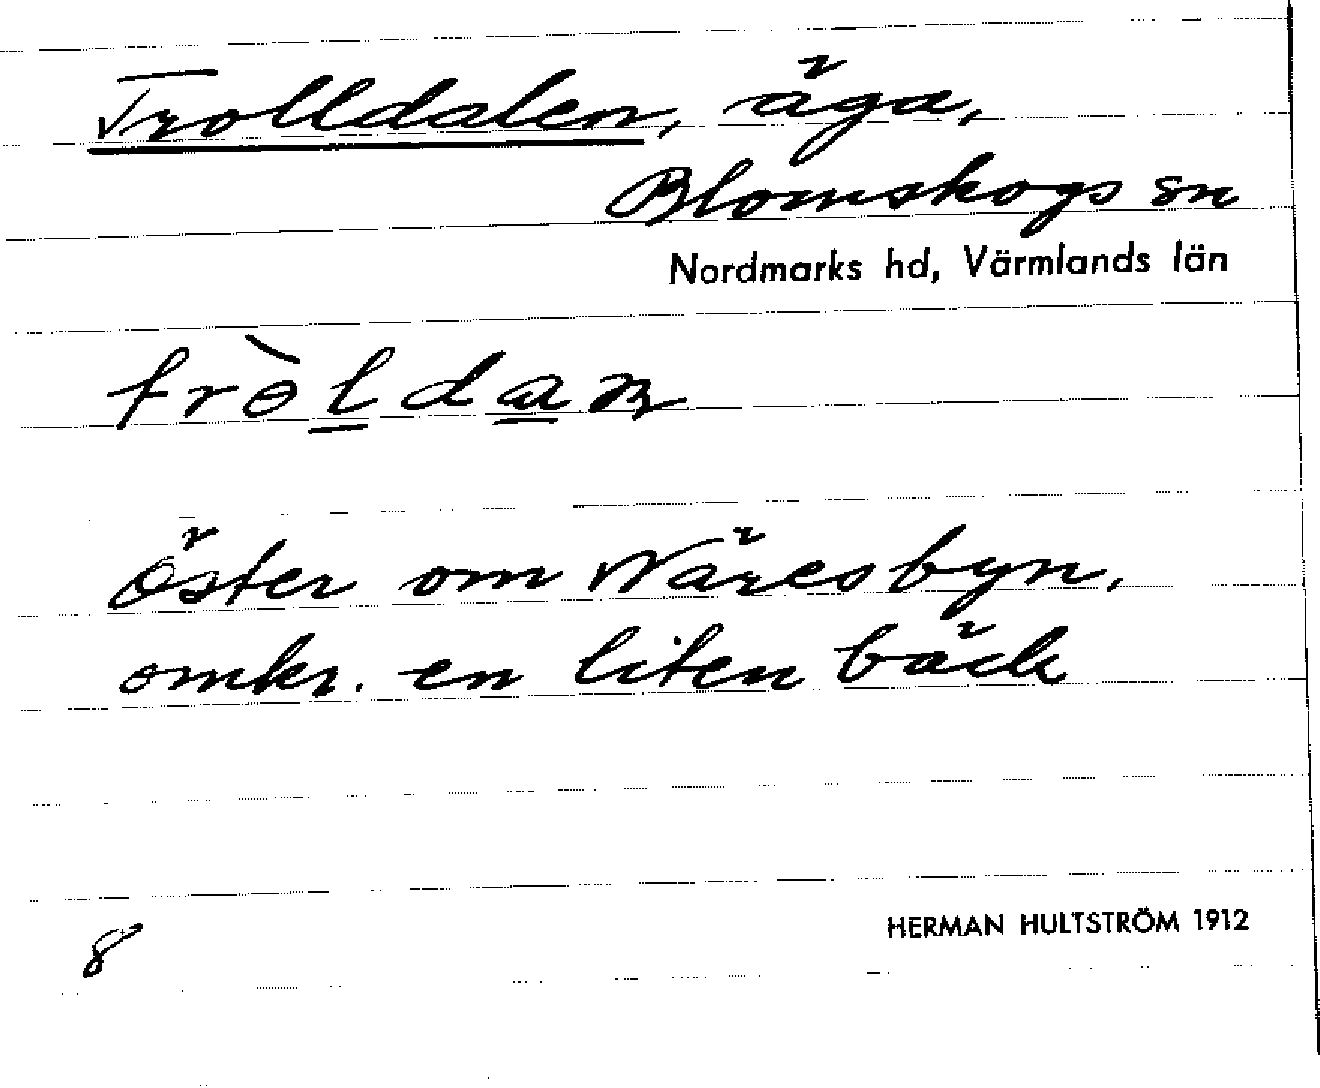 Trolldalen, äga,
Blomskogs sn
Nordmarks hd, Värmlands län
trɵ̀ldan
Öster om Näresbyn,
omkr. en liten bäck
8
HERMAN HULTSTRÖM 1912